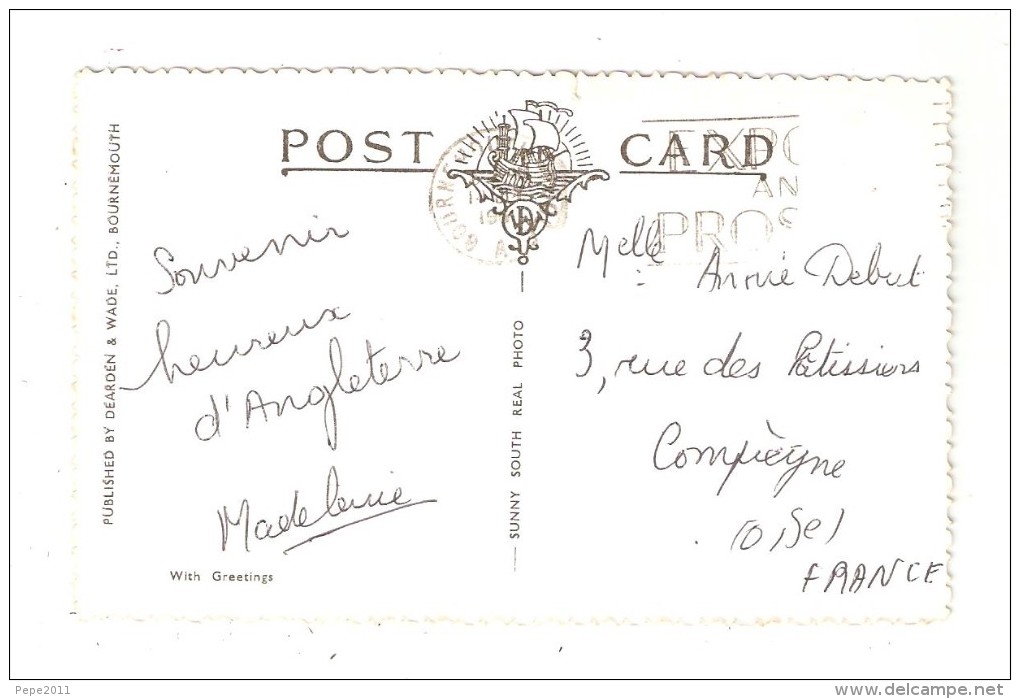 POST CARD
PUBLISHED BY DEARDEN & WADE, LTD., BOURNEMOUTH
EXPO
AN
PROS
Souvenir
heureux
d'Angleterre
Madeleine
With Greetings
SUNNY SOUTH REAL PHOTO
Melle Annie Debut
3, rue des Pâtissiers
Compiègne
(Oise)
FRANCE
Pepe2011
delcampe.net